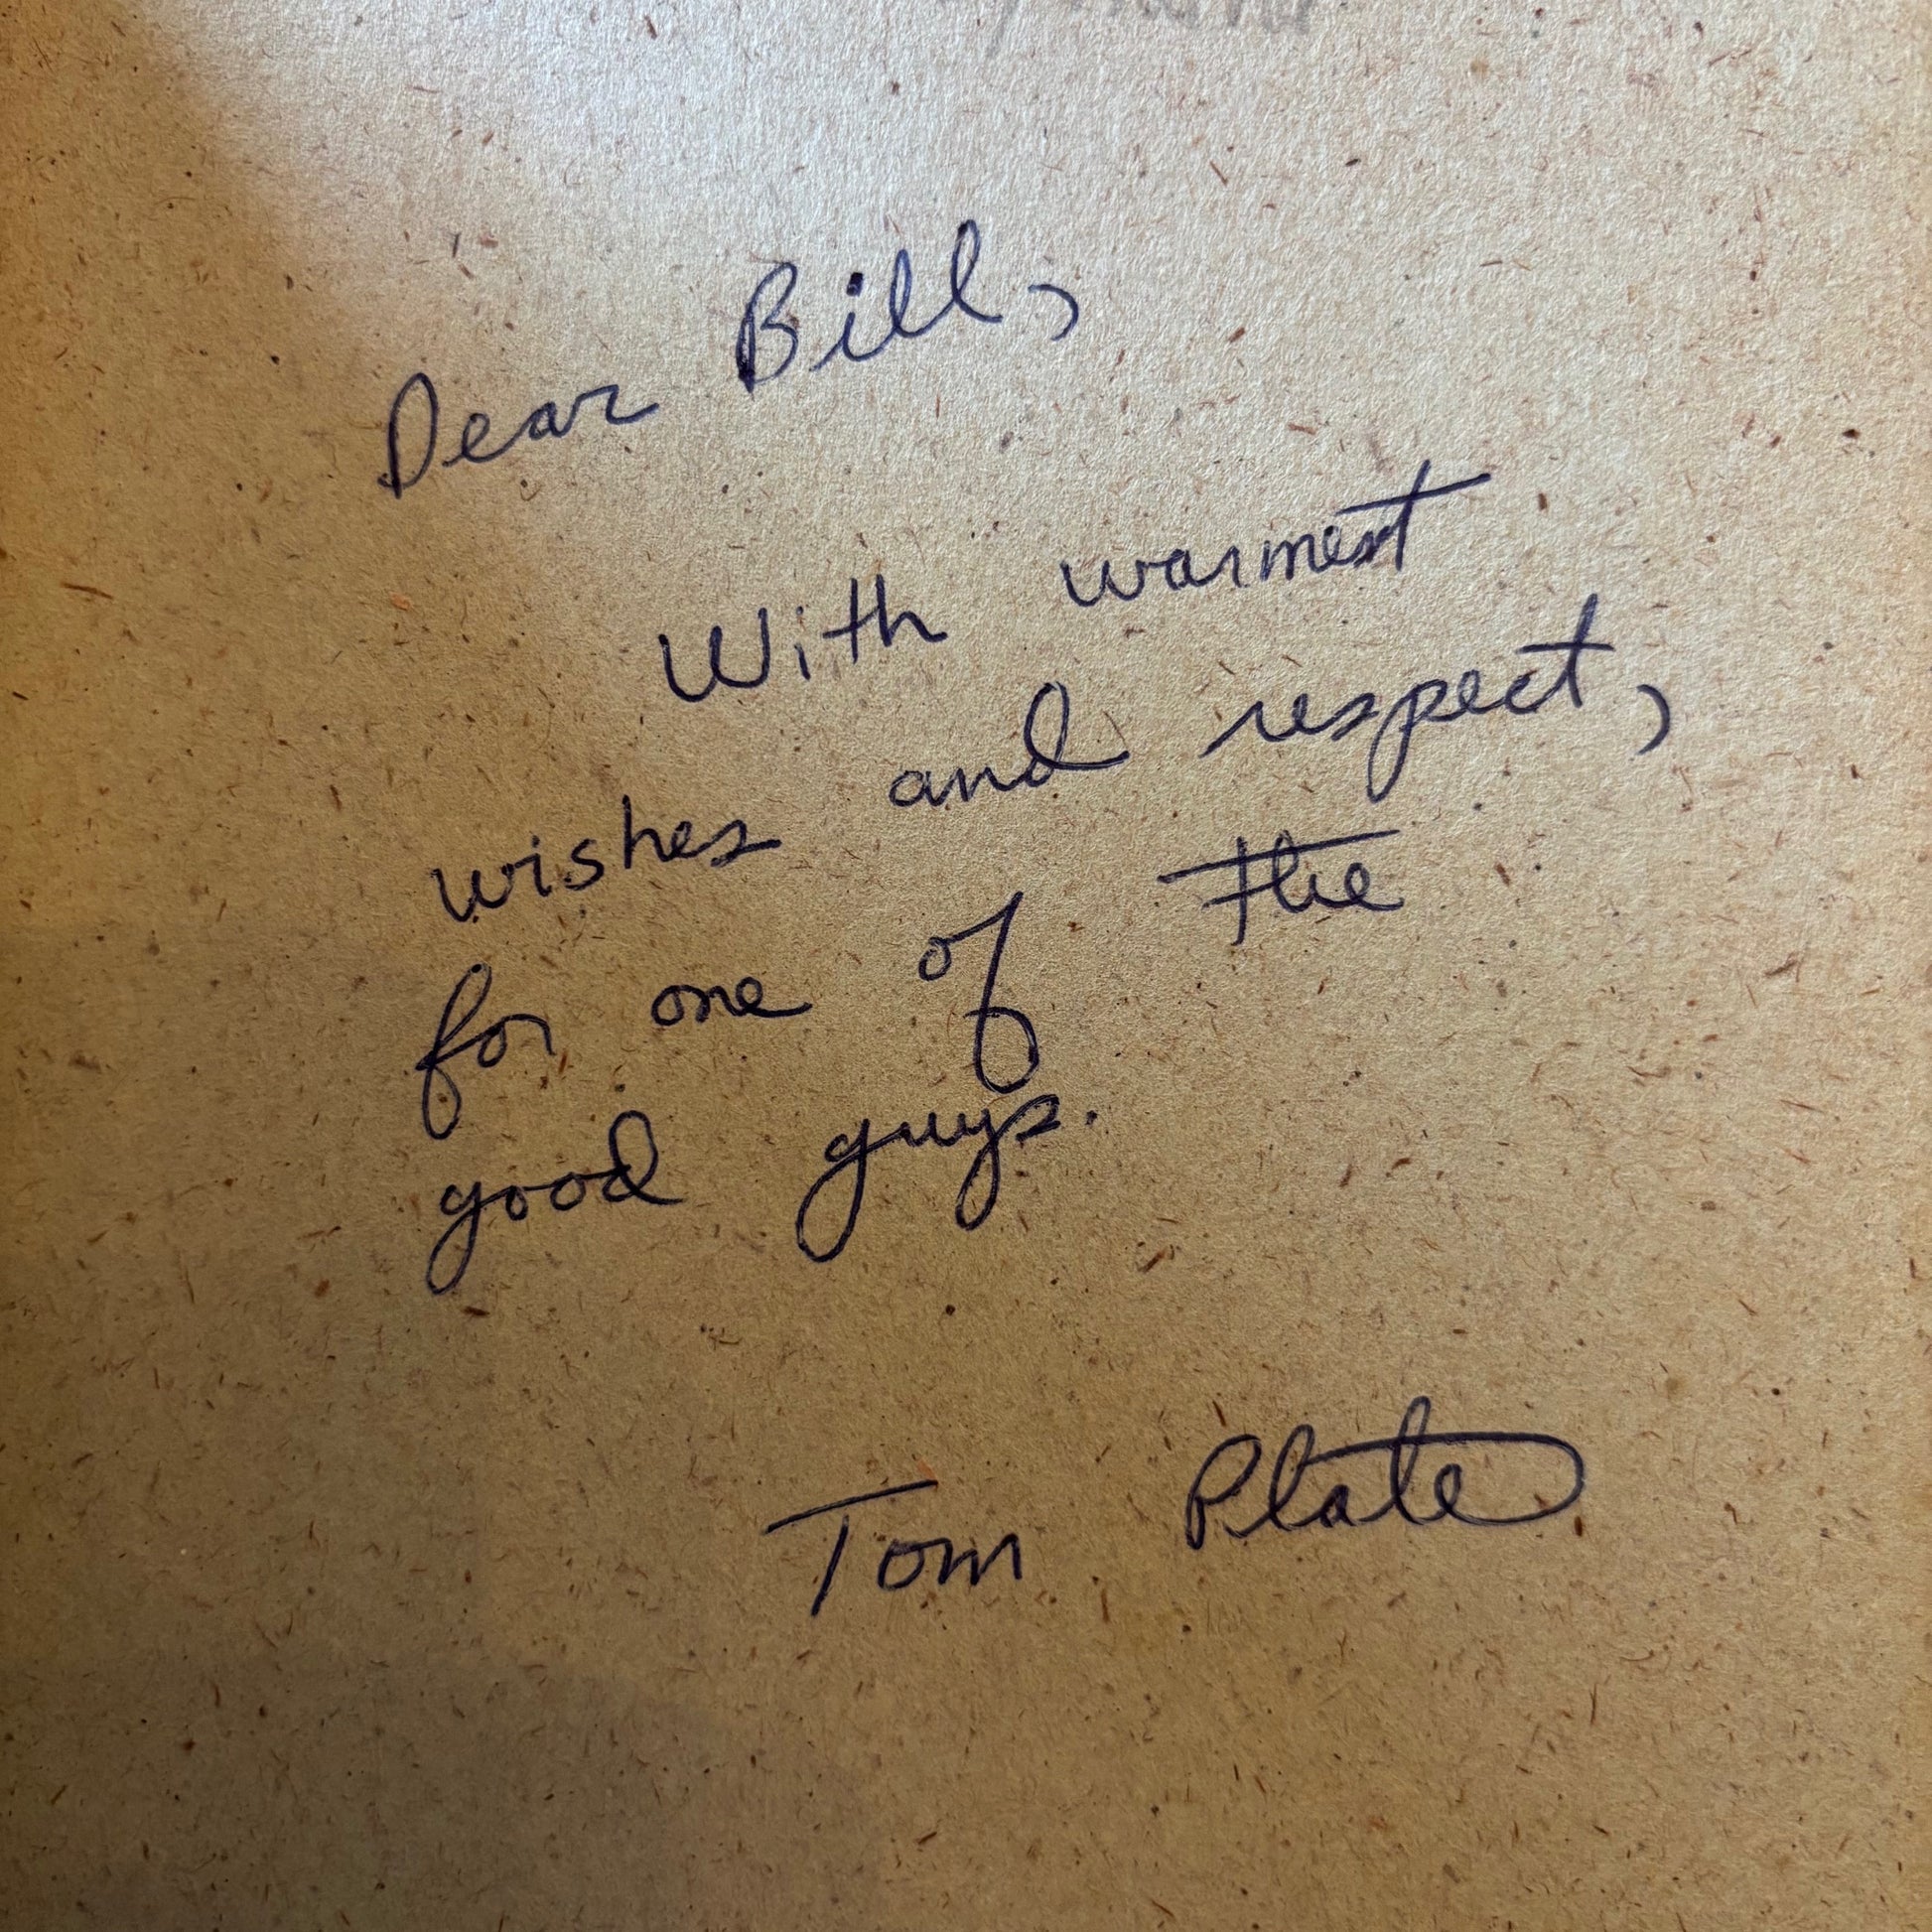 Dear Bill,
With warmest
wishes and respect,
for one of the
good guys.
Tom Plate